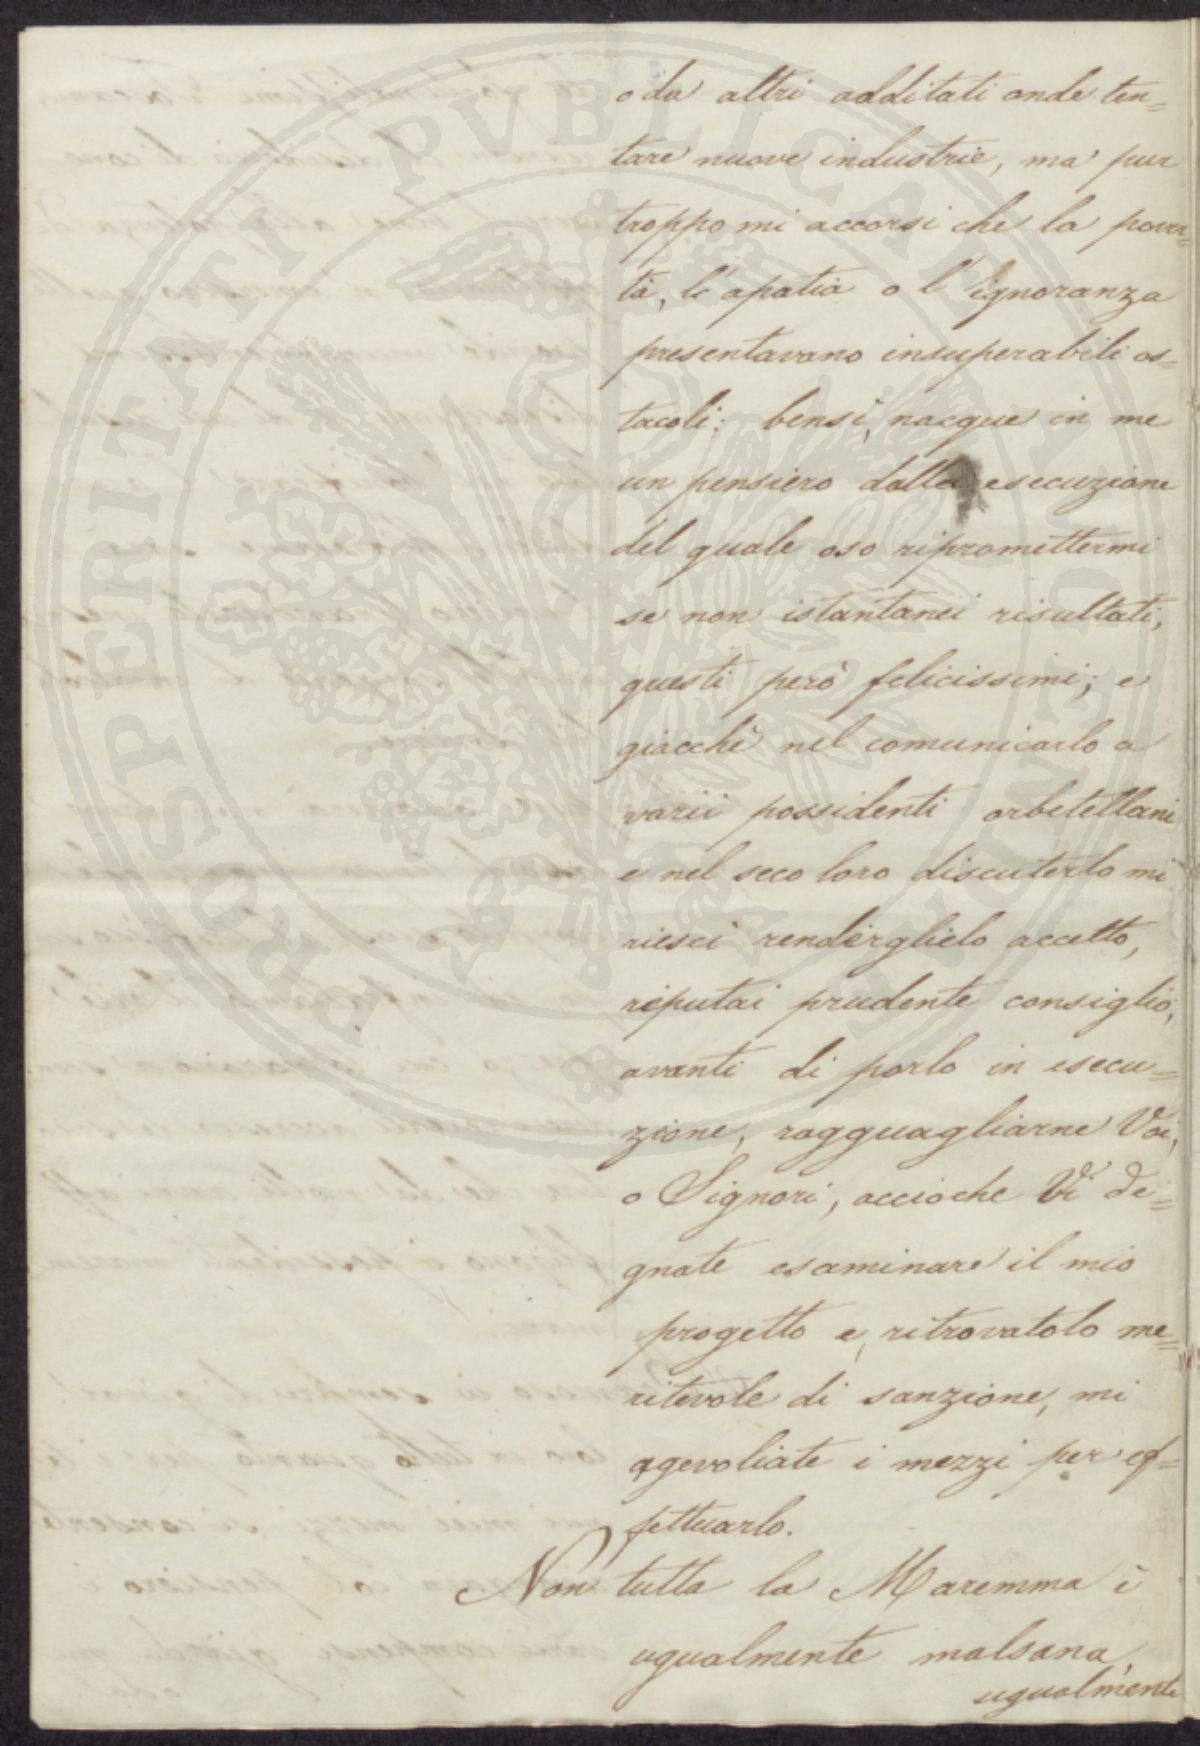 o da altri additati onde ten=
tare nuove industrie, ma pur
troppo mi accorsi che la pover=
tà, l'apatia o l'ignoranza
presentavano insuperabili os=
tacoli; bensì, nacque in me
un pensiero dalla esecuzione
del quale oso ripromettermi
se non istantanei risultati,
questi però felicissimi; e
giacchè nel comunicarlo a
varii possidenti orbetellani
e nel seco loro discuterlo mi
riesci renderglielo accetto,
reputai prudente consiglio,
avanti di porlo in esecu=
zione, ragguagliarne Voi,
o Signori, acciochè Vi de=
gnate esaminare il mio
progetto e, ritrovatolo me=
ritevole di sanzione, mi
agevoliate i mezzi per ef=
fettuarlo.
Non tutta la Maremma è
ugualmente malsana,
ugualmente
PROSPERITATI PUBLICAE AUGENDAE